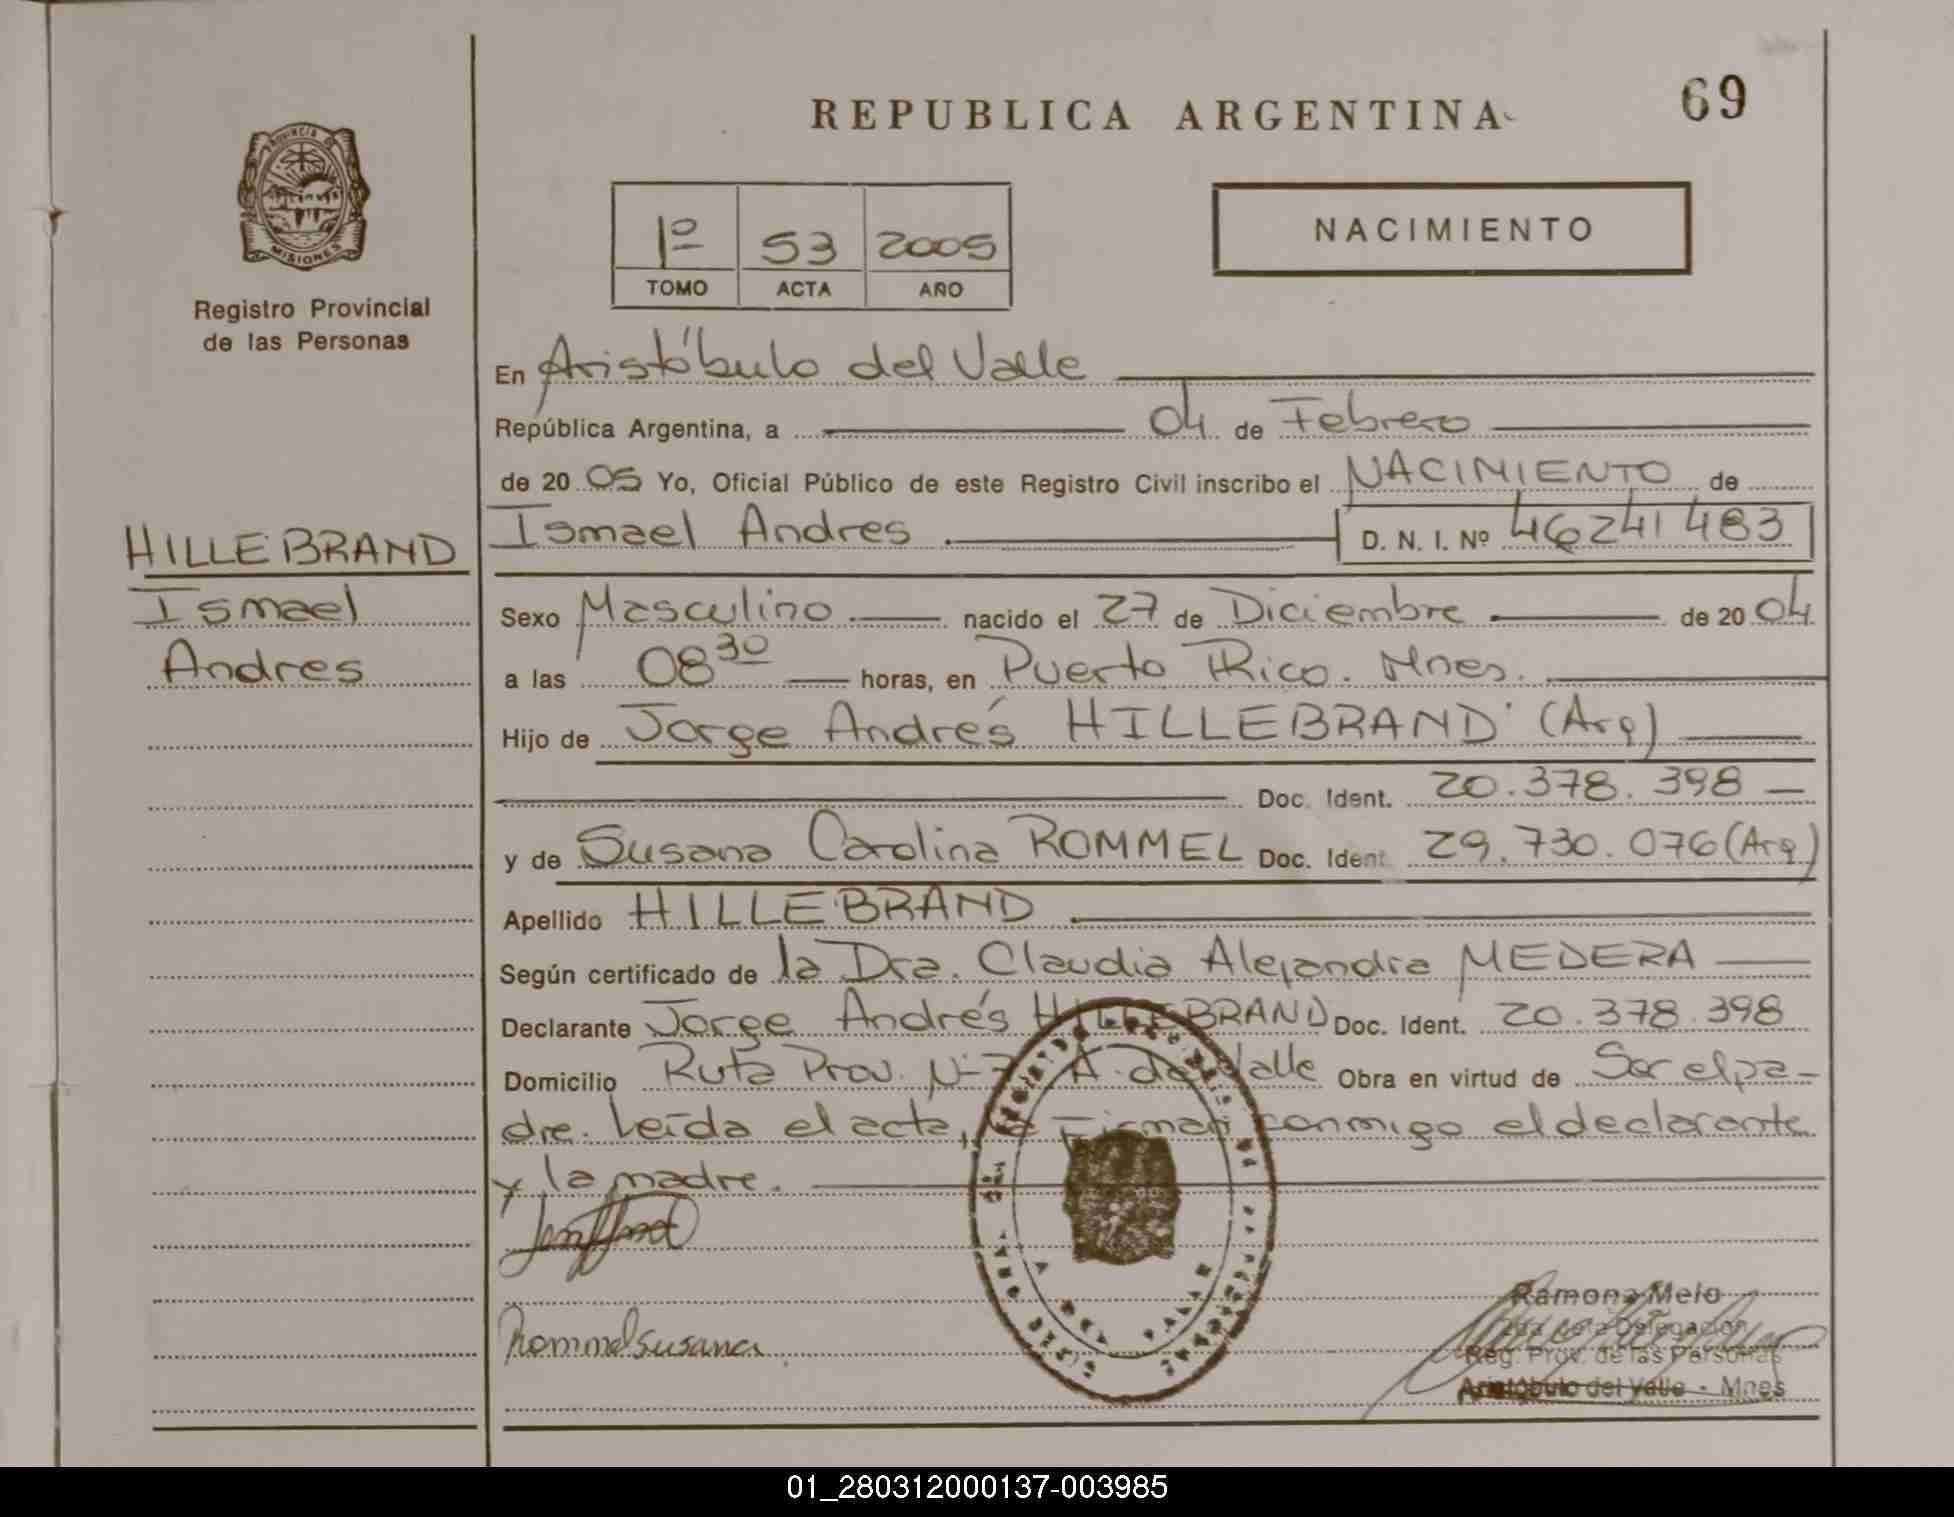 REPUBLICA ARGENTINA
69
PROVINCIA DE
MISIONES
Registro Provincial
de las Personas
1º 53 2005
TOMO ACTA AÑO
NACIMIENTO
En Aristóbulo del Valle
República Argentina, a 04 de Febrero
de 20 05 Yo, Oficial Público de este Registro Civil inscribo el NACIMIENTO de
Ismael Andres D. N. I. Nº 46241483
HILLEBRAND
Ismael
Andres
Sexo Masculino nacido el 27 de Diciembre de 20 04
a las 08 30 horas, en Puerto Rico. Mnes.
Hijo de Jorge Andrés HILLEBRAND (Arg)
Doc. Ident. 20.378.398
y de Susana Carolina ROMMEL Doc. Ident 29.730.076 (Arg)
Apellido HILLEBRAND
Según certificado de la Dra. Claudia Alejandra MEDERA
Declarante Jorge Andrés HILLEBRAND Doc. Ident. 20.378.398
Domicilio Ruta Prov. Nº 7 A. del Valle Obra en virtud de Ser el pa-
dre. Leída el acta, la Firman conmigo el declarante
y la madre.
Rommel Susana
Ramona Melo
Delegación
Reg. Prov. de las Personas
Aristóbulo del Valle - Mnes
01_280312000137-003985